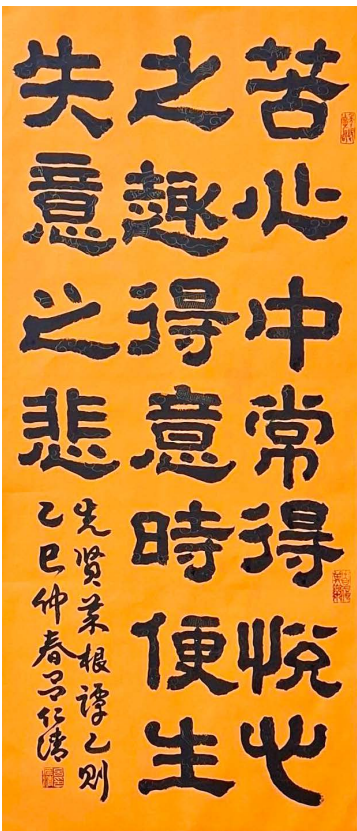 苦心中常得悦心
之趣得意時便生
失意之悲
先贤菜根譚乙则
乙巳仲春吕仁清